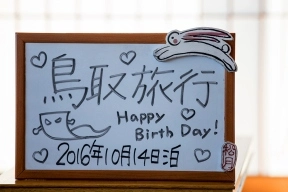 鳥取旅行
Happy
Birth Day!
2016年10月14日泊